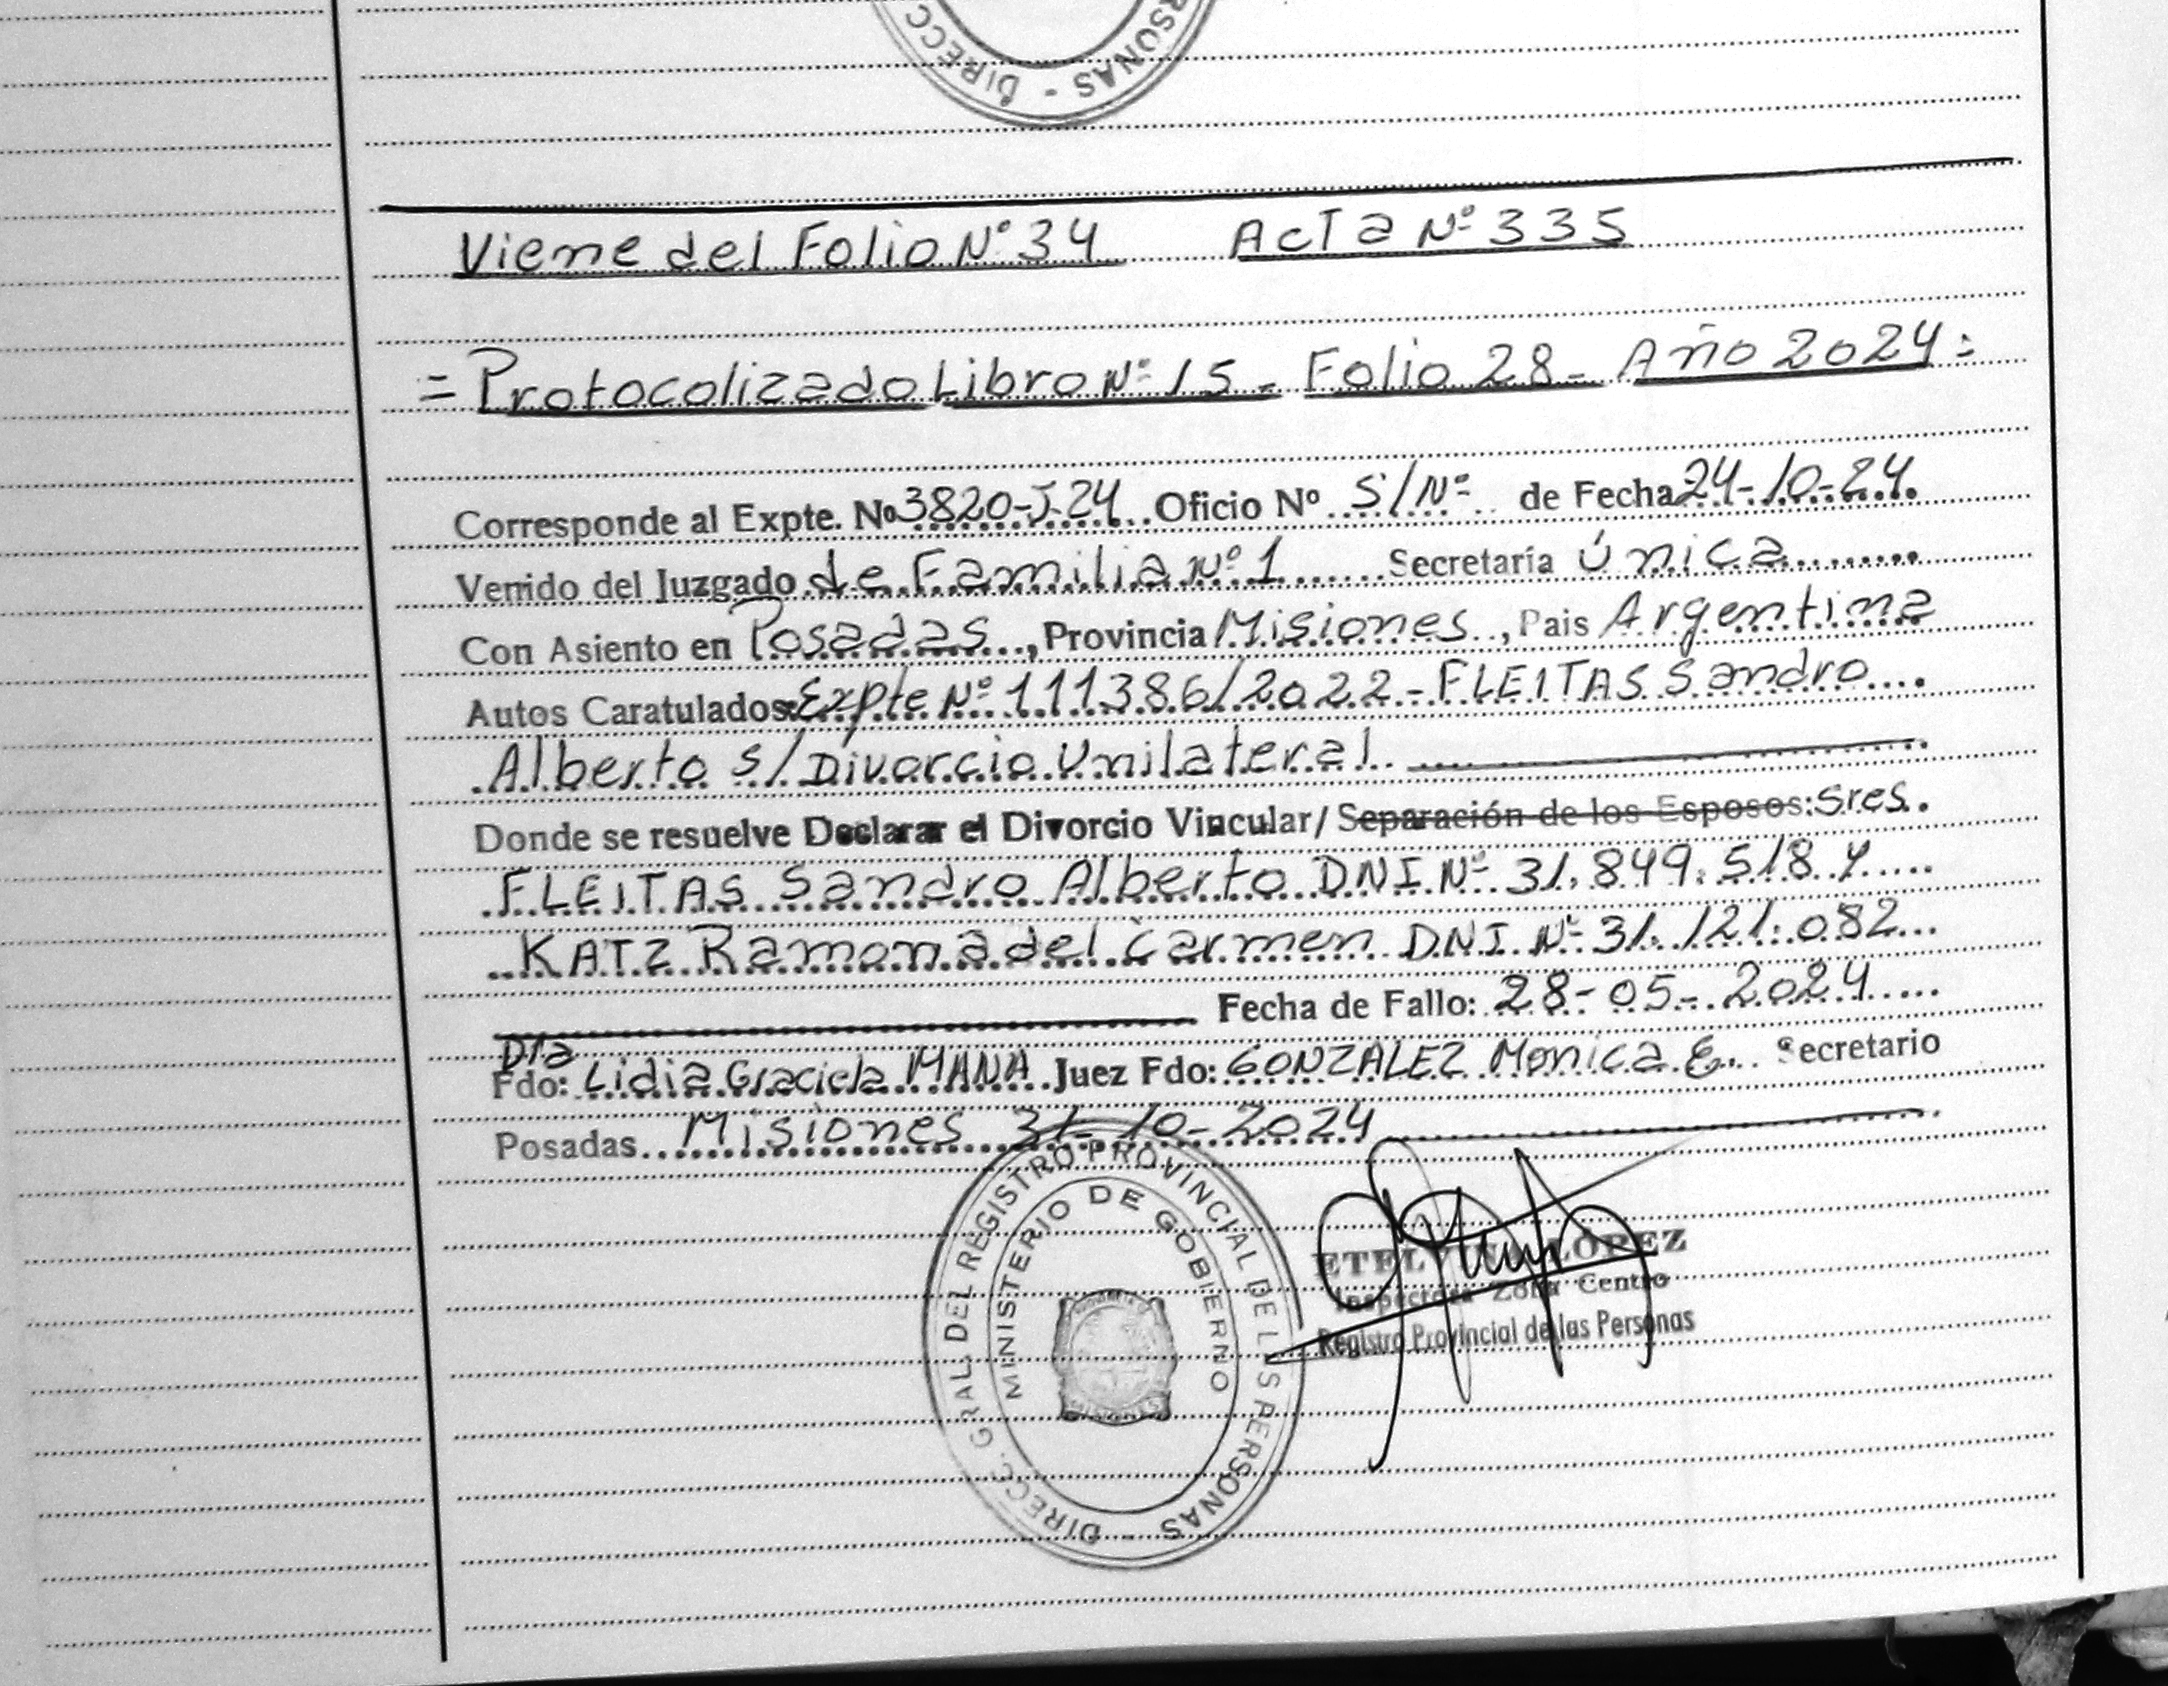 DIRECC
RSONAS -
Viene del Folio Nº 34 Acta Nº 335
= Protocolizado Libro Nº 15 - Folio 28 - Año 2024 =
Corresponde al Expte. Nº 3820-J-24 Oficio Nº S/Nº de Fecha 24-10-24
Venido del Juzgado de Familia Nº 1 Secretaría Única
Con Asiento en Posadas, Provincia Misiones, Pais Argentina
Autos Caratulados: Expte Nº 111386/2022 - FLEITAS Sandro
Alberto s/ Divorcio Unilateral
Donde se resuelve Declarar el Divorcio Vincular/ Separación de los Esposos: Sres.
FLEITAS Sandro Alberto DNI Nº 31.849.518 y
KATZ Ramona del Carmen DNI Nº 31.121.082
Fecha de Fallo: 28-05-2024
Dra
Fdo: Lidia Graciela MANA Juez Fdo: GONZALEZ Monica E. Secretario
Posadas Misiones 31-10-2024
DIRECC. GRAL. DEL REGISTRO PROVINCIAL DE LAS PERSONAS -
MINISTERIO DE GOBIERNO
ETELVINA LÓPEZ
Inspectora Zona Centro
Registro Provincial de las Personas